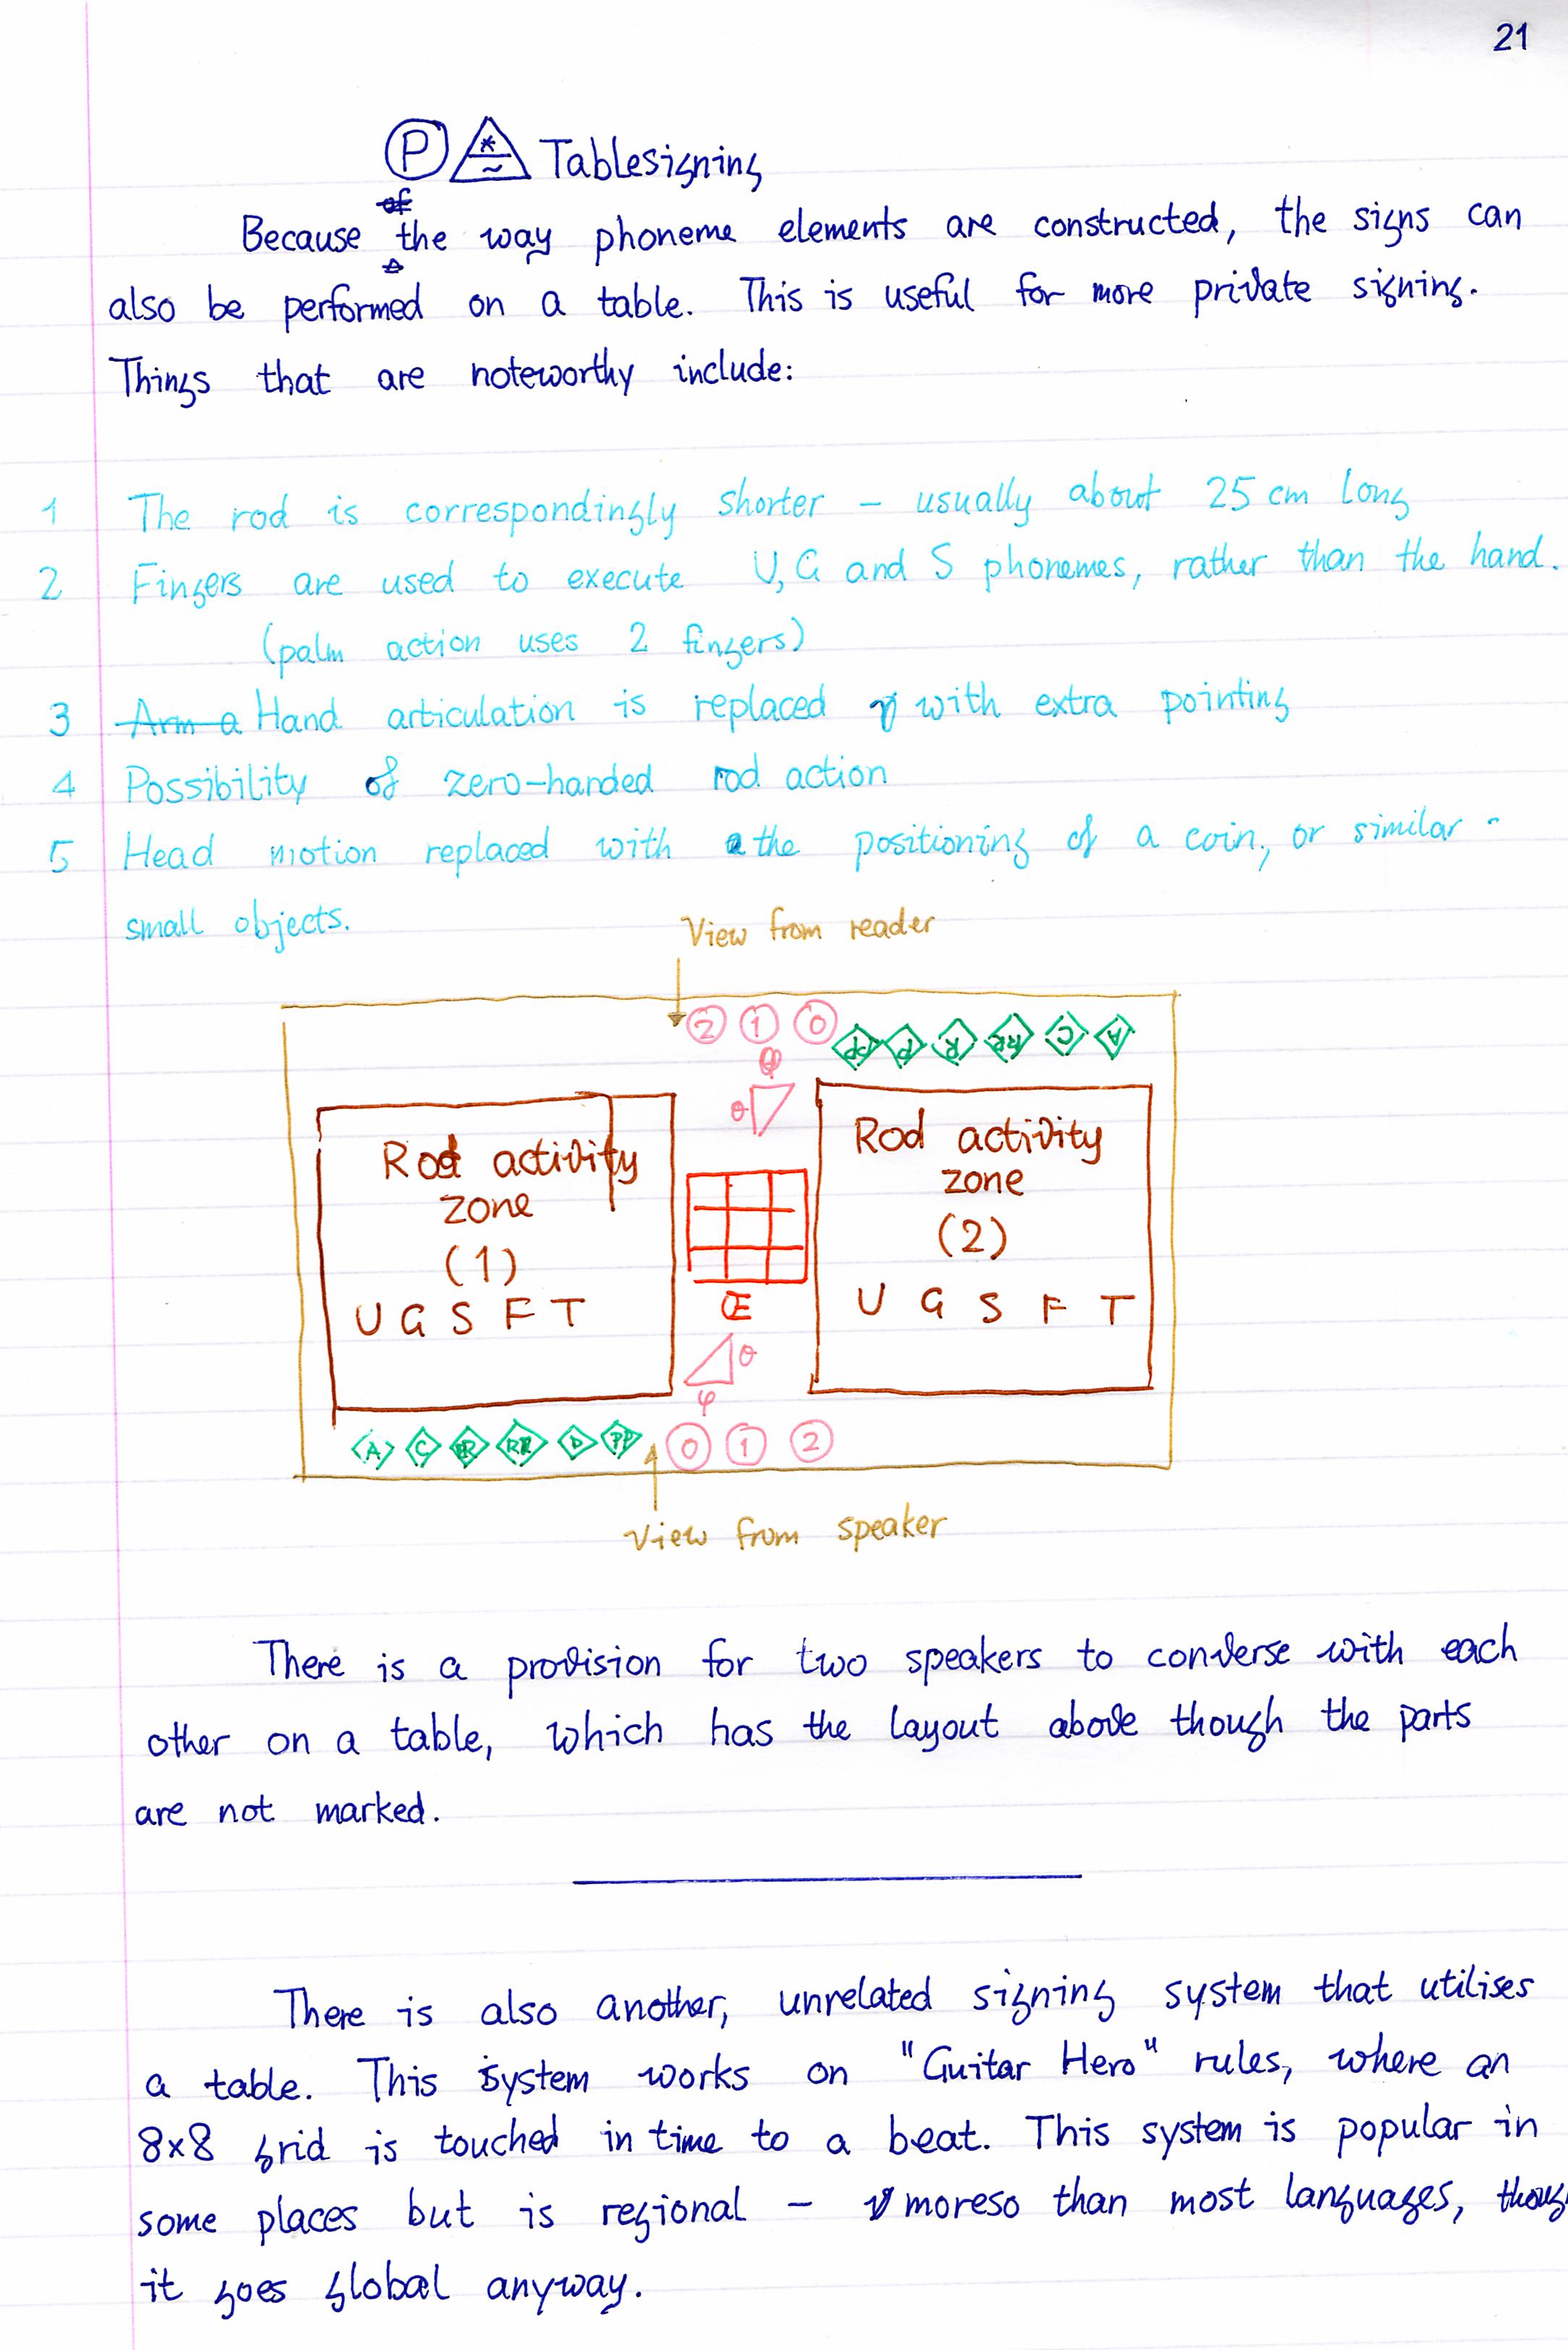 21
P * ~ Tablesigning
Because of the way phoneme elements are constructed, the signs can
also be performed on a table. This is useful for more private signing.
Things that are noteworthy include:
1 The rod is correspondingly shorter – usually about 25 cm long
2 Fingers are used to execute U, G and S phonemes, rather than the hand.
(palm action uses 2 fingers)
3 Arm a Hand articulation is replaced with extra pointing
4 Possibility of zero-handed rod action
5 Head motion replaced with the positioning of a coin, or similar -
small objects.
View from reader
2 1 0 PP P R RR C A
φ
θ
Rod activity
zone
(1)
U G S F T
Œ
Rod activity
zone
(2)
U G S F T
θ
φ
A C R RR P PP 0 1 2
View from speaker
There is a provision for two speakers to converse with each
other on a table, which has the layout above though the parts
are not marked.
There is also another, unrelated signing system that utilises
a table. This system works on "Guitar Hero" rules, where an
8×8 grid is touched in time to a beat. This system is popular in
some places but is regional – moreso than most languages, thoug
it goes global anyway.